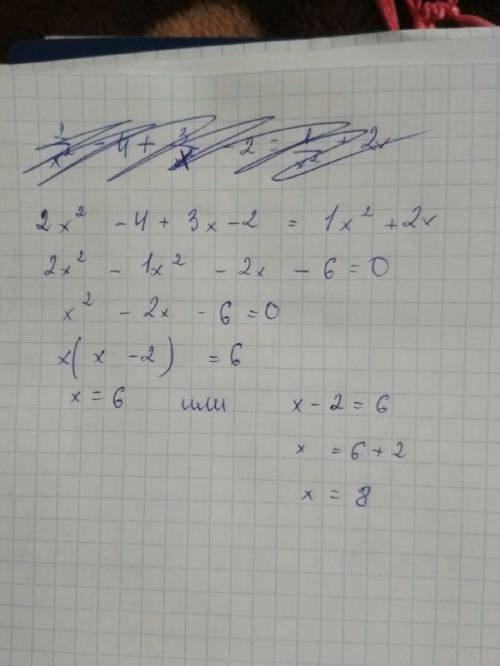 2x² - 4 + 3x - 2 = 1x² + 2x
2x² - 1x² - 2x - 6 = 0
x² - 2x - 6 = 0
x( x - 2) = 6
x = 6 или x - 2 = 6
x = 6 + 2
x = 8